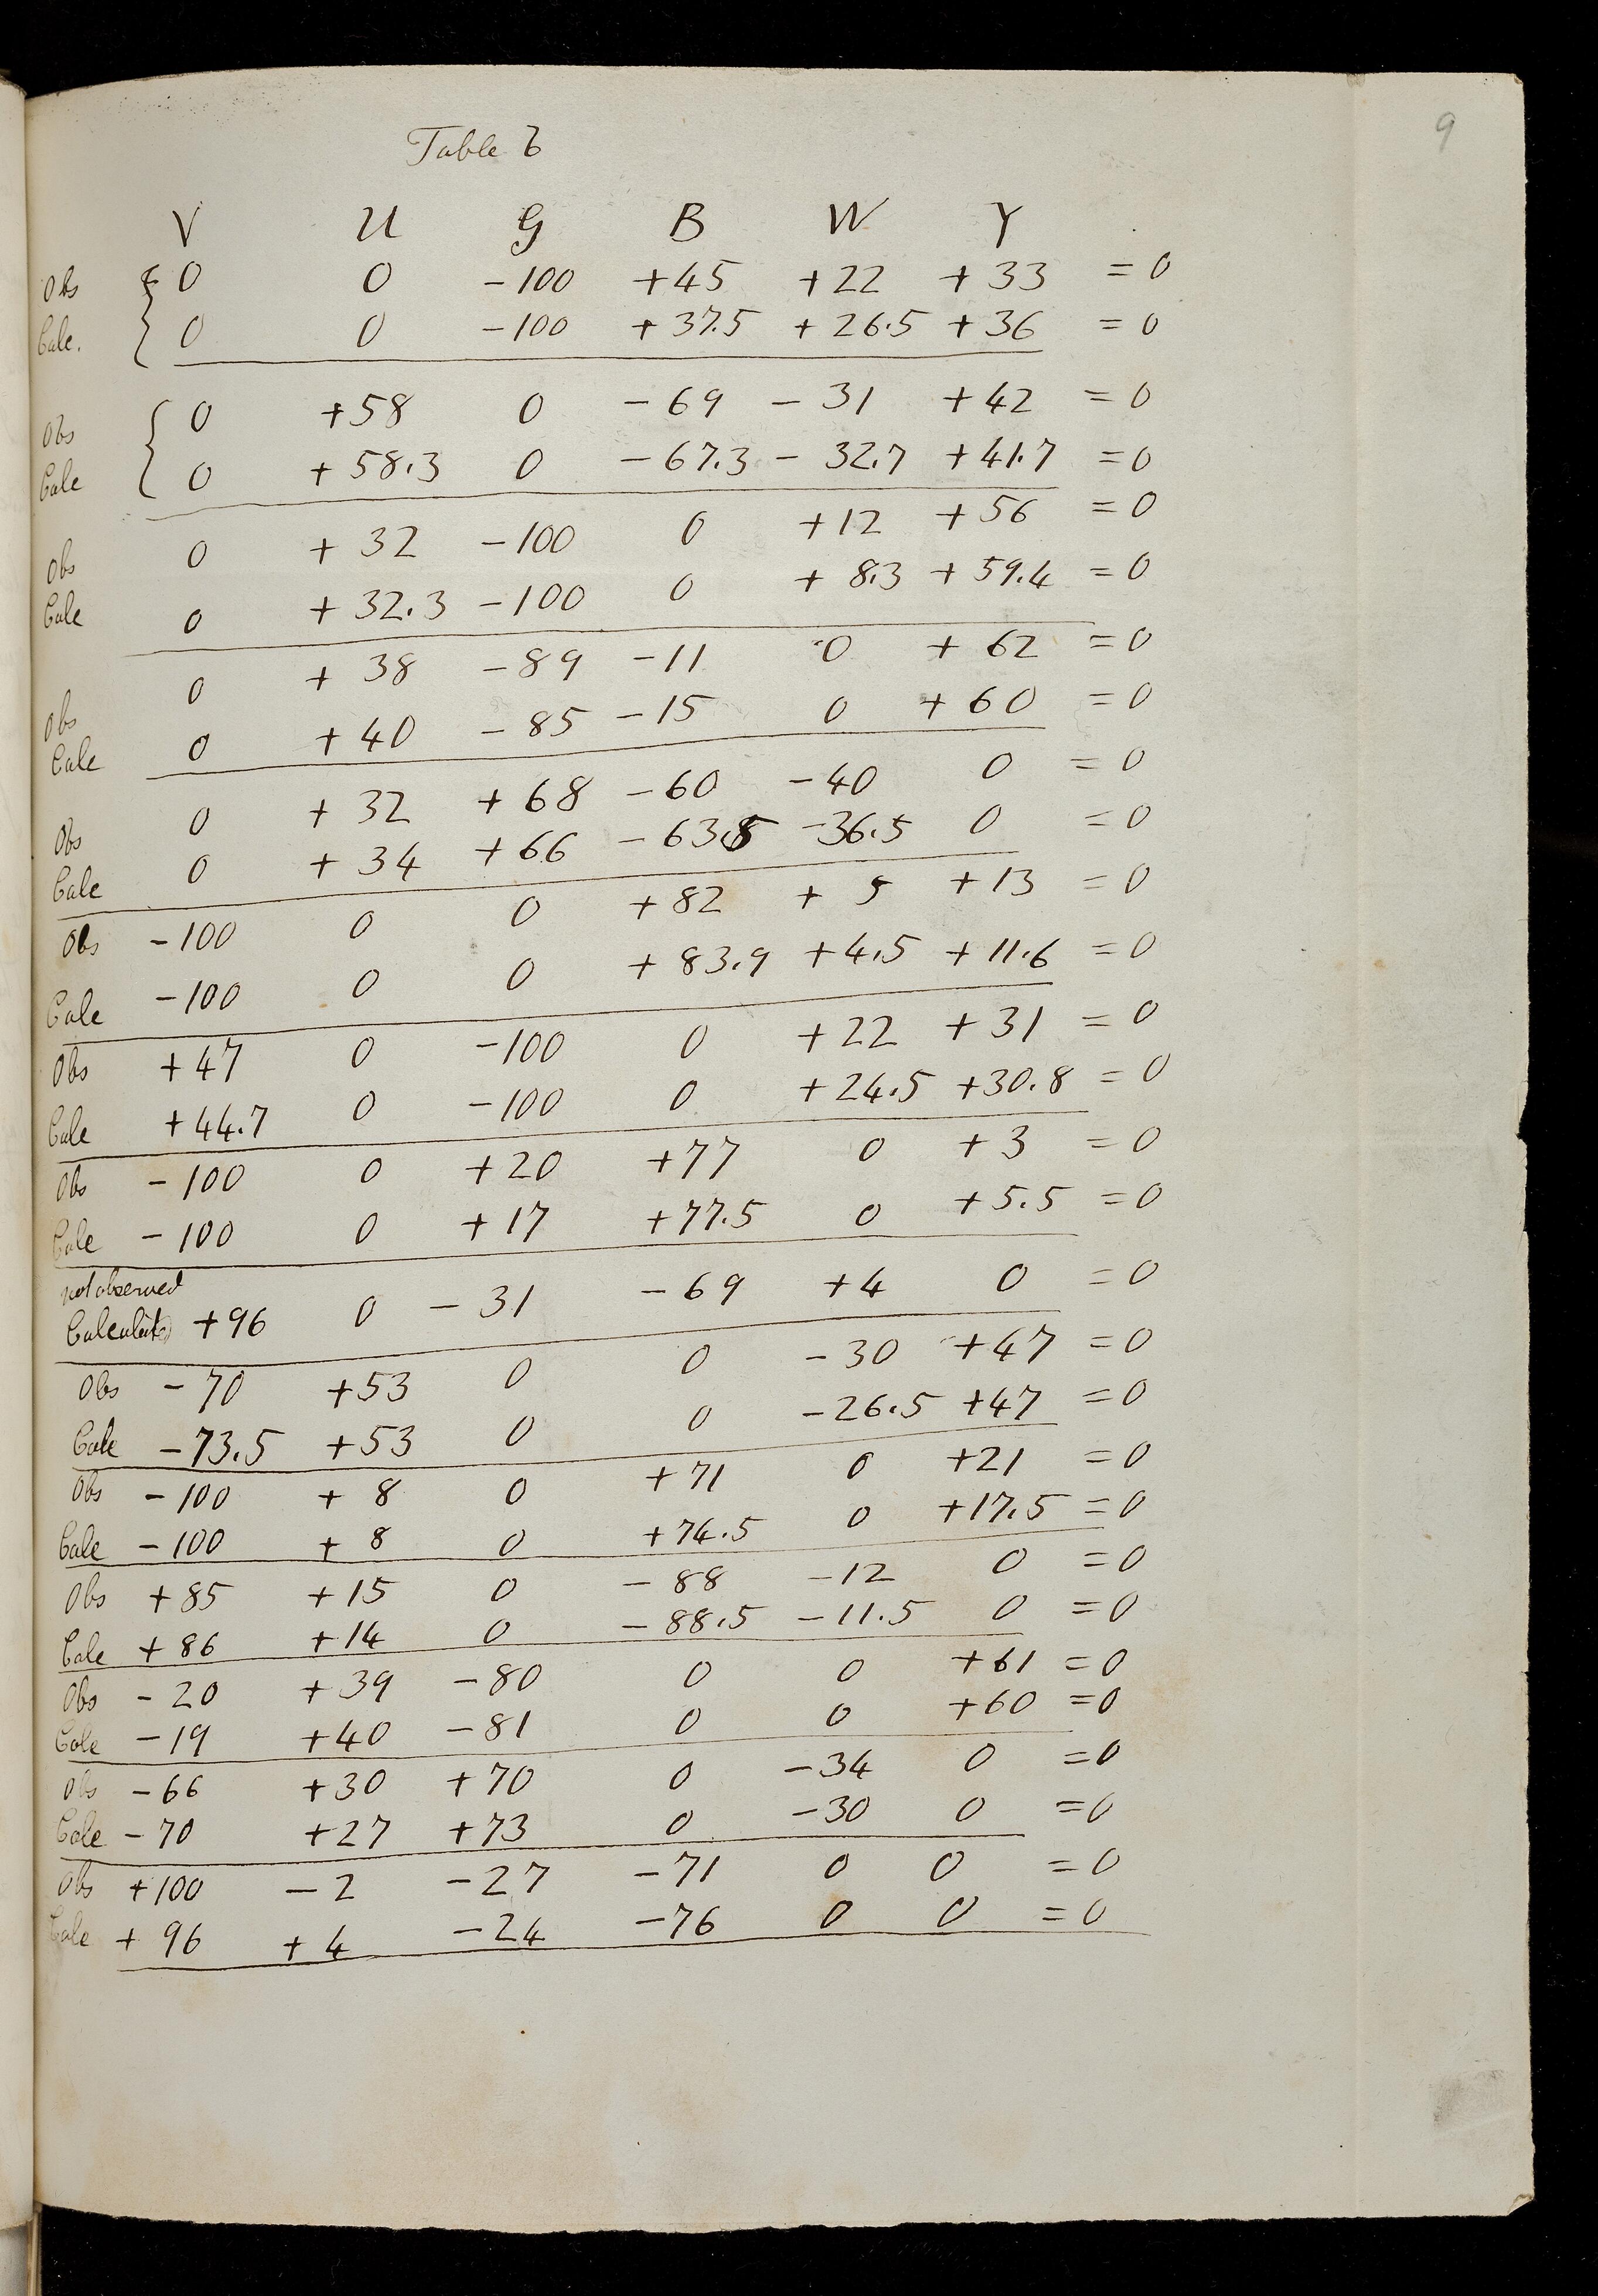 9
Table 6
V U G B W Y
Obs { 0 0 -100 +45 +22 +33 =0
Calc. 0 0 -100 +37.5 +26.5 +36 =0
Obs { 0 +58 0 -69 -31 +42 =0
Calc 0 +58.3 0 -67.3 -32.7 +41.7 =0
Obs 0 +32 -100 0 +12 +56 =0
Calc 0 +32.3 -100 0 +8.3 +59.4 =0
Obs 0 +38 -89 -11 0 +62 =0
Calc 0 +40 -85 -15 0 +60 =0
Obs 0 +32 +68 -60 -40 0 =0
Calc 0 +34 +66 -63.5 -36.5 0 =0
Obs -100 0 0 +82 +5 +13 =0
Calc -100 0 0 +83.9 +4.5 +11.6 =0
Obs +47 0 -100 0 +22 +31 =0
Calc +44.7 0 -100 0 +24.5 +30.8 =0
Obs -100 0 +20 +77 0 +3 =0
Calc -100 0 +17 +77.5 0 +5.5 =0
not observed
Calculated +96 0 -31 -69 +4 0 =0
Obs -70 +53 0 0 -30 +47 =0
Calc -73.5 +53 0 0 -26.5 +47 =0
Obs -100 +8 0 +71 0 +21 =0
Calc -100 +8 0 +74.5 0 +17.5 =0
Obs +85 +15 0 -88 -12 0 =0
Calc +86 +14 0 -88.5 -11.5 0 =0
Obs -20 +39 -80 0 0 +61 =0
Calc -19 +40 -81 0 0 +60 =0
Obs -66 +30 +70 0 -34 0 =0
Calc -70 +27 +73 0 -30 0 =0
Obs +100 -2 -27 -71 0 0 =0
Calc +96 +4 -24 -76 0 0 =0